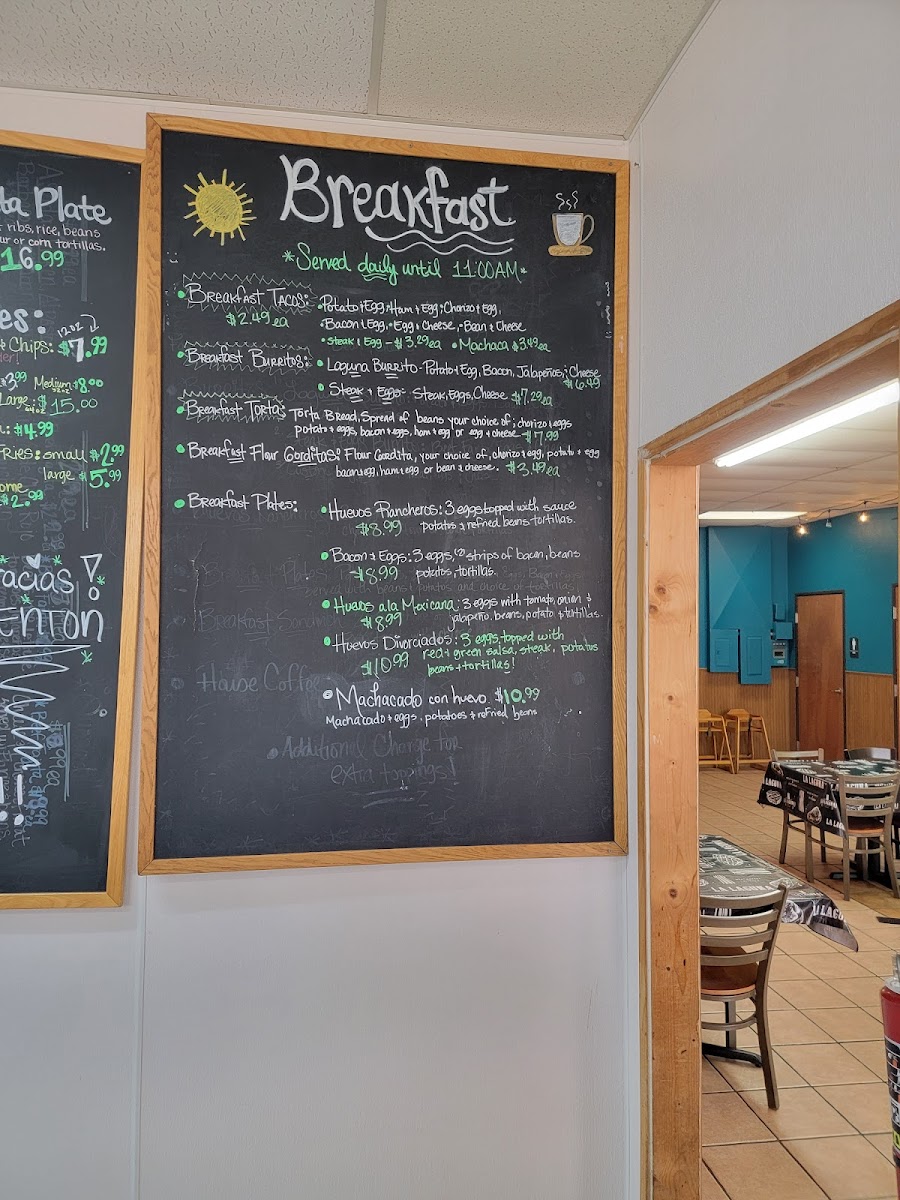 ta Plate
ribs, rice, beans
ur or corn tortillas.
16.99
es:
12oz
& Chips: $7.99
$3.99 Medium: $8.00
Large: $15.00
: $4.99
FRIES: small $2.99
large $5.99
ome
$2.99
acias!
ENTON
Breakfast
*Served daily until 11:00AM*
Breakfast Tacos: • Potato + Egg • Ham + Egg • Chorizo + Egg,
$2.49 ea • Bacon + Egg, • Egg + Cheese, • Bean + Cheese
• Steak + Egg - $3.29 ea • Machaca $3.49 ea
• Breakfast Burritos: • Laguna Burrito - Potato + Egg, Bacon, Jalapeños, + Cheese
$6.49
• Steak + Eggs - Steak, Eggs, Cheese $7.29 ea
• Breakfast Torta: Torta Bread, Spread of beans your choice of; chorizo + eggs
potato + eggs, bacon + eggs, ham + egg or egg + cheese $7.99
• Breakfast Flour Gorditas: Flour Gordita, your choice of, chorizo + egg, potato + egg
bacon + egg, ham + egg or bean + cheese. $3.49 ea
• Breakfast Plates: • Huevos Rancheros: 3 eggs topped with sauce
$8.99 potatos + refried beans tortillas.
• Bacon + Eggs: 3 eggs, (2) strips of bacon, beans
$8.99 potatos, tortillas.
• Huevos a la Mexicana: 3 eggs with tomato, onion +
$8.99 jalapeño, beans, potato + tortillas.
• Huevos Divorciados: 3 eggs topped with
$10.99 red + green salsa, steak, potatos
beans + tortillas!
House Coffee
• Machacado con huevo $10.99
Machacado + eggs, potatoes + refried beans
• Additional Charge for
extra toppings!
LA LAGUNA
LA LAGUNA